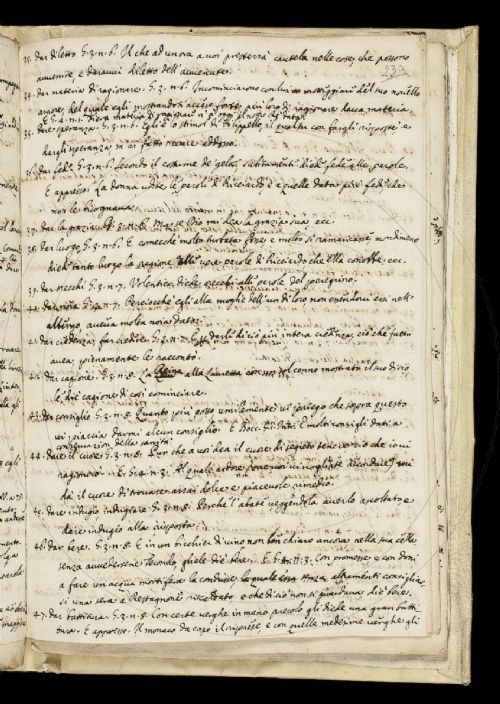 35. dar diletto G. 3. n. 6. Il che ad una ora a voi presterrà cautela nelle cose, che possono
avvenire, e daravvi diletto dell' avvenute.
34. dar materia di ragionare. G. 3. n. 6. Incominciarono con lui a motteggiare del suo novello
amore, del quale egli mostrandosi acceso forte, più loro di ragionare dava materia.
35. dare speranza. G. 3. n. 6.
dargli speranza, in ciò fatto recare
36. dar fede G. 3. n. 6. Secondo il costume de gelosi, subitamenti diede fede alle parole.
E appresso. La donna udite le parole di Ricciardo e a quelle data più fede che
non le bisognava.
37. dar la grazia. G. 3. n. 6. Ma se Dio mi dea la grazia sua ecc.
38. dar luogo G. 3. n. 6. E comechè molto turbata fosse, e molto si ramaricasse nondimeno
diede tanto luogo la ragione alle vere parole di Ricciardo che ella conobbe ecc.
39. dar orecchi G. 3. n. 7. Volentier diede orecchi alle parole del peregrino.
40. dar noia G. 3. n. 7. Perciocchè egli alla moglie dell' un di loro non entendosi essi nell'
albergo, aveva molta noia data.
41. dar credenza, far credere. G. 3. n. 7. darli di ciò più intera credenza, ciò che fatto
avea, pienamente le raccontò.
42. dar cagione. G. 3. n. 8. La Reina alla Lauretta con un cenno mostrato il suo disio
le diè cagione di così cominciare.
43. dar consiglio G. 3. n. 8. Quanto più posso umilemente vi priego che sopra questo
vi piaccia darmi alcun consiglio. E Bocc. E molti consigli dati a
conservazion della sanità.
44. dare il cuore G. 3. n. 8. Pur che a voi dea il cuore di segreto tenere ciò che io vi
ragionerò. E G. 4. n. 3. Al quale ardore ove voi vi vogliate accordare, mi
dà il cuore di trovare assai dolce e piacevole rimedio.
45. dare indugio indugiare G. 3. n. 8. Perchè l'abate veggendola averlo ascoltato e
dare indugio alla risposta.
46. dar bere. G. 3. n. 8. E in un bicchier di vino non ben chiaro ancora nella sua cella
senza avvedersene Ferondo, gliele diè bere. E G. 4. n. 3. Con promesse e con doni
a fare un'acqua mortifera la condusse, la quale essa senza altramenti consigliarsi,
una sera a Restagnone riscaldato e che di ciò non si guardava diè bere.
47. dar battitura. G. 3. n. 8. Con certe verghe in mano presolo gli diede una gran battitura.
E appresso. Il monaco da capo il riprese, e con quelle medesime verghe gli